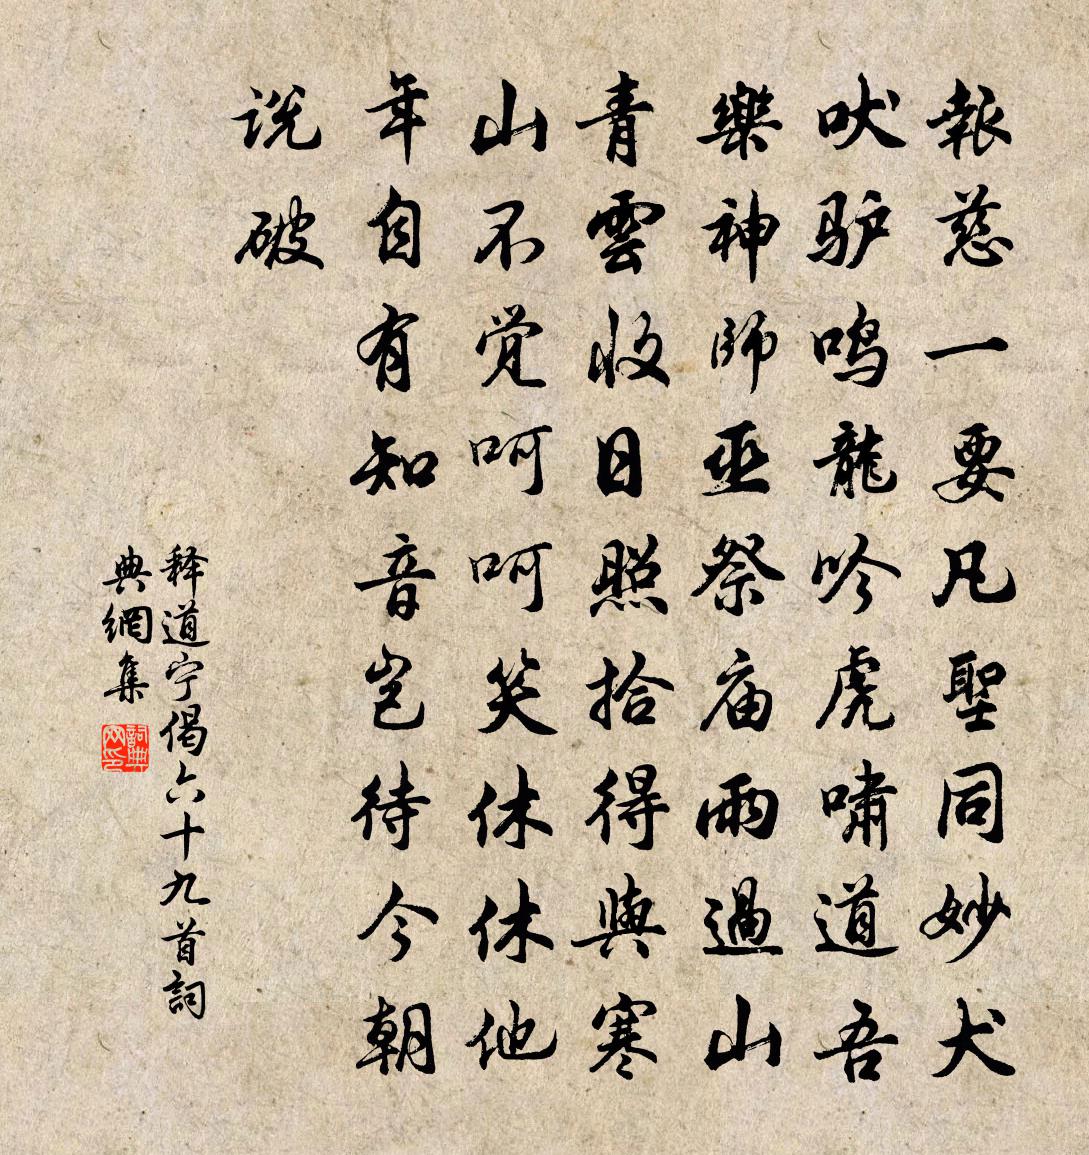 報慈一要凡聖同妙犬
吠驴鸣龍吟虎啸道吾
樂神師巫祭庙雨過山
青雲收日照拾得與寒
山不觉呵呵笑休休他
年自有知音岂待今朝
说破
释道宁偈六十九首詞
典網集
詞典
网印